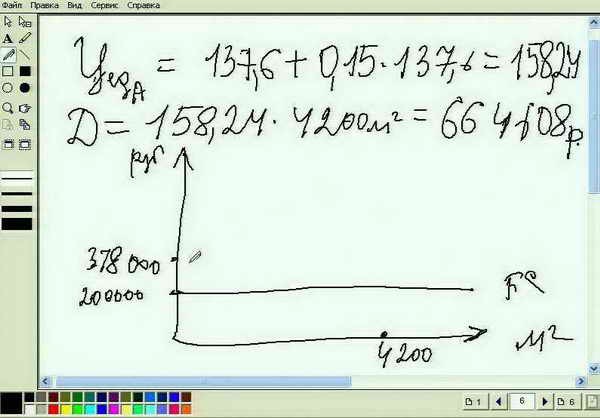 Файл Правка Вид Сервис Справка
Ц ед A = 137,6 + 0,15 · 137,6 = 158,24
Д = 158,24 · 4200 м² = 664608 р.
руб
378 000
200000
FC
4 200
м²
1
6
6